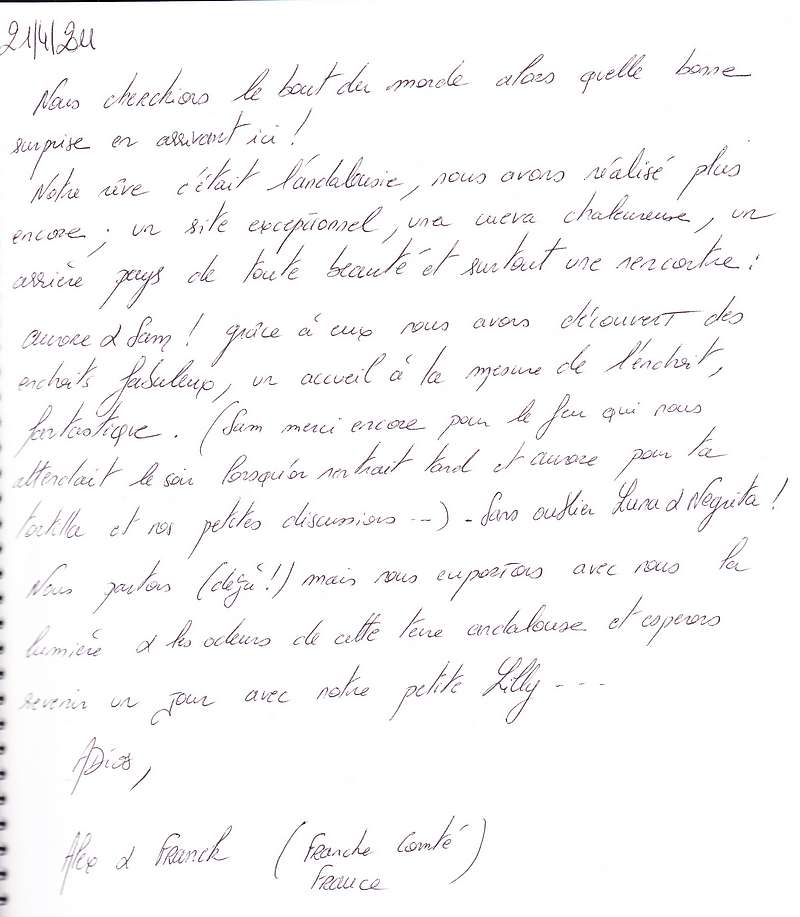 21/4/2011
Nous cherchions le bout du monde alors quelle bonne
surprise en arrivant ici !
Notre rêve c'était l'andalousie, nous avons réalisé plus
encore ; un site exceptionnel, una cueva chaleureuse, un
arrière pays de toute beauté et surtout une rencontre :
aurore & Sam ! grâce à eux nous avons découvert des
endroits fabuleux, un accueil à la mesure de l'endroit,
fantastique. (Sam merci encore pour le feu qui nous
attendait le soir lorsqu'on rentrait tard et aurore pour ta
tortilla et nos petites discussions ...) - Sans oublier Luna & Negrita !
Nous partons (déjà !) mais nous emportons avec nous la
lumière & les odeurs de cette terre andalouse et esperons
revenir un jour avec notre petite Lilly ---
ADios,
Alex & Franck (Franche Comté)
France